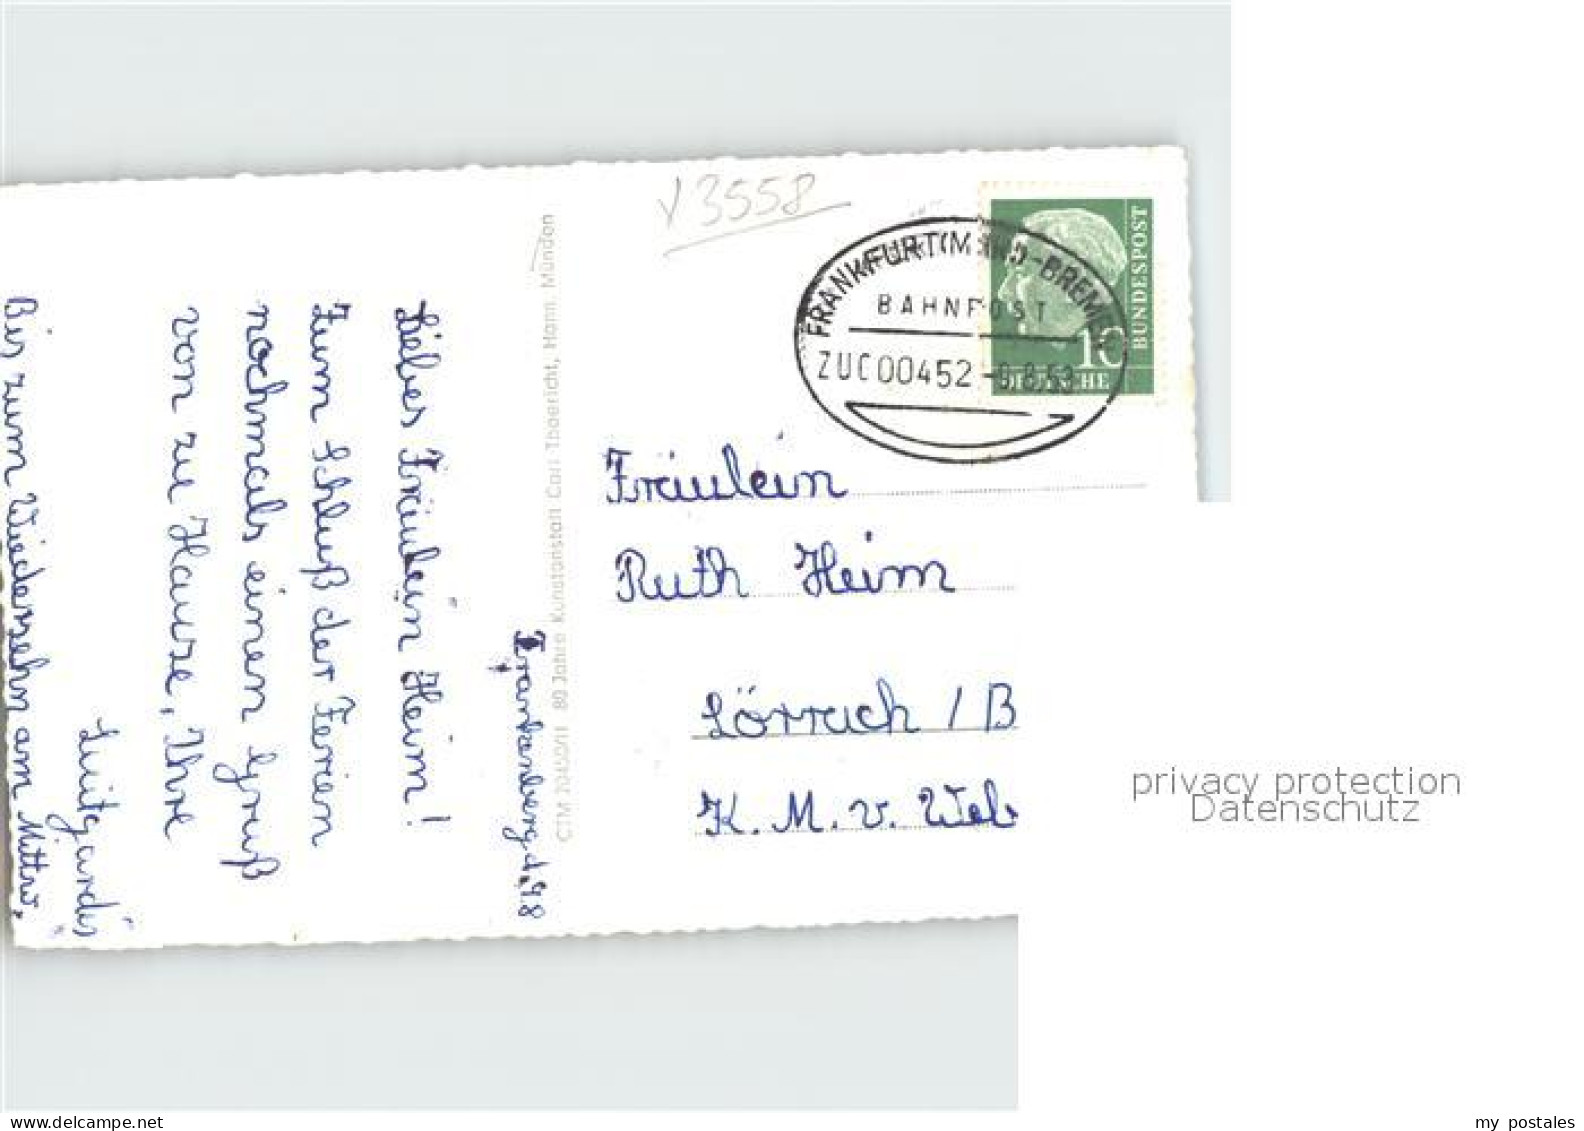 Frankenberg, d. 9.8
Liebes Fräulein Heim!
Zum Schluß der Ferien
nochmals einen Gruß
von zu Hause, Ihre
Luitgardis
Bis zum Wiedersehn am Mittw.
CTM 70450/11 80 Jahre Kunstanstalt Carl Thoericht, Hann. Münden
√3558
FRANKFURT(M)-BREMEN
BAHNPOST
ZUG00452
DEUTSCHE
BUNDESPOST
10
Fräulein
Ruth Heim
Lörrach / B
K. M. v. Web
privacy protection
Datenschutz
delcampe.net
my postales